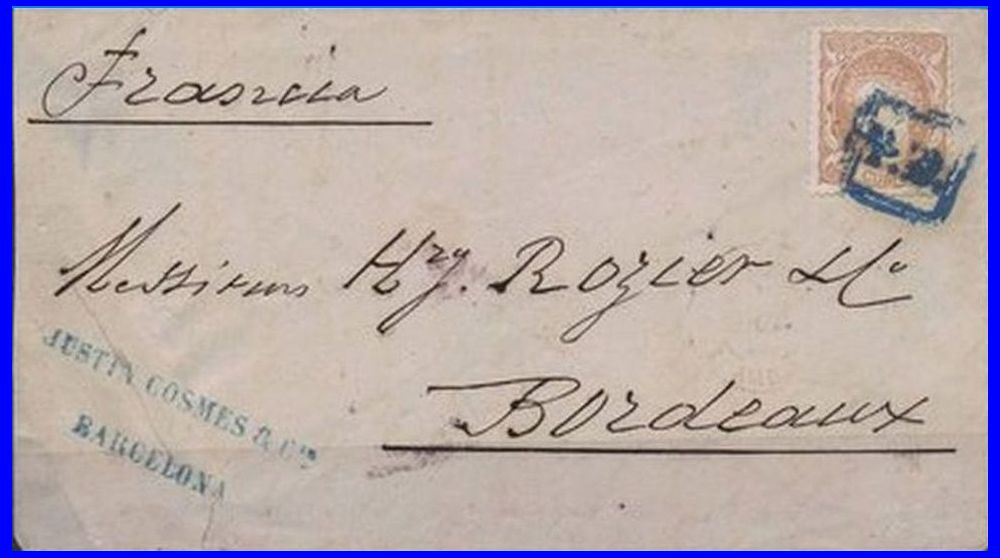 Francia
P.D.
Messieurs Hry. Rozier & Co
Bordeaux
JUSTIN COSMES & Cia
BARCELONA